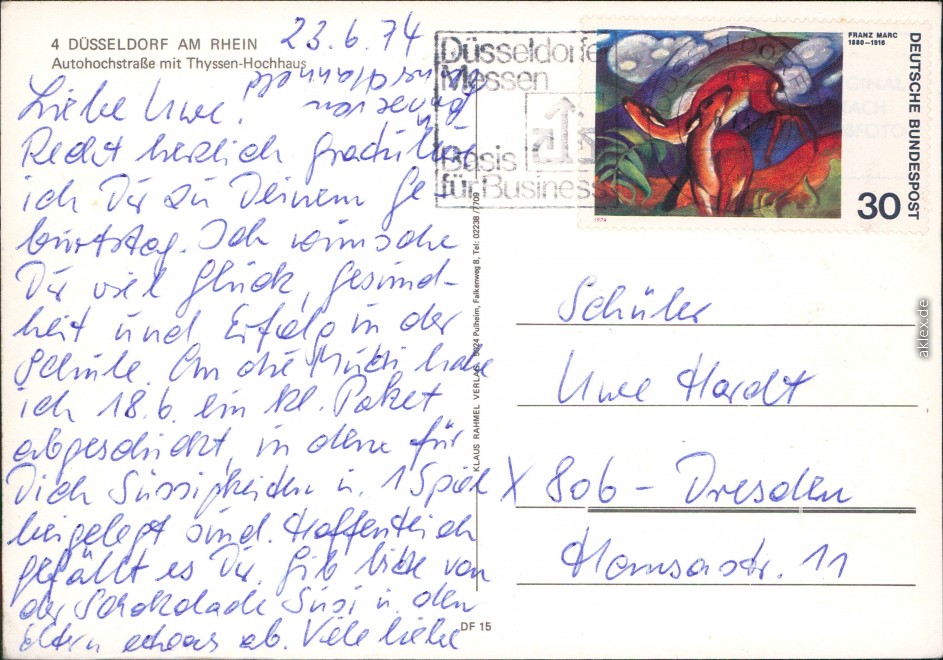 4 DÜSSELDORF AM RHEIN
Autohochstraße mit Thyssen-Hochhaus
23.6.74
Liebe Uwe!
Recht herzlich gratuliere
ich Dir zu Deinem Ge-
burtstag. Ich wünsche
Dir viel Glück, Gesund-
heit und Erfolg in der
Schule. An die Mutti habe
ich 18.6. ein kl. Paket
abgeschickt, in dem für
Dich Süssigkeiten u. 1 Spiel
beigelegt sind. Hoffentlich
gefällt es Dir. Gib bitte von
der Schokolade Susi u. den
Eltern etwas ab. Viele liebe
KLAUS RAHMEL VERLAG, 5024 Pulheim, Falkenweg 8, Tel: 02238 / 7709
DF 15
Düsseldorfer
Messen
Basis
für Business
FRANZ MARC
1880-1916
DEUTSCHE BUNDESPOST
30
1974
Schüler
Uwe Hardt
X 806 - Dresden
Hansastr. 11
aklex.de